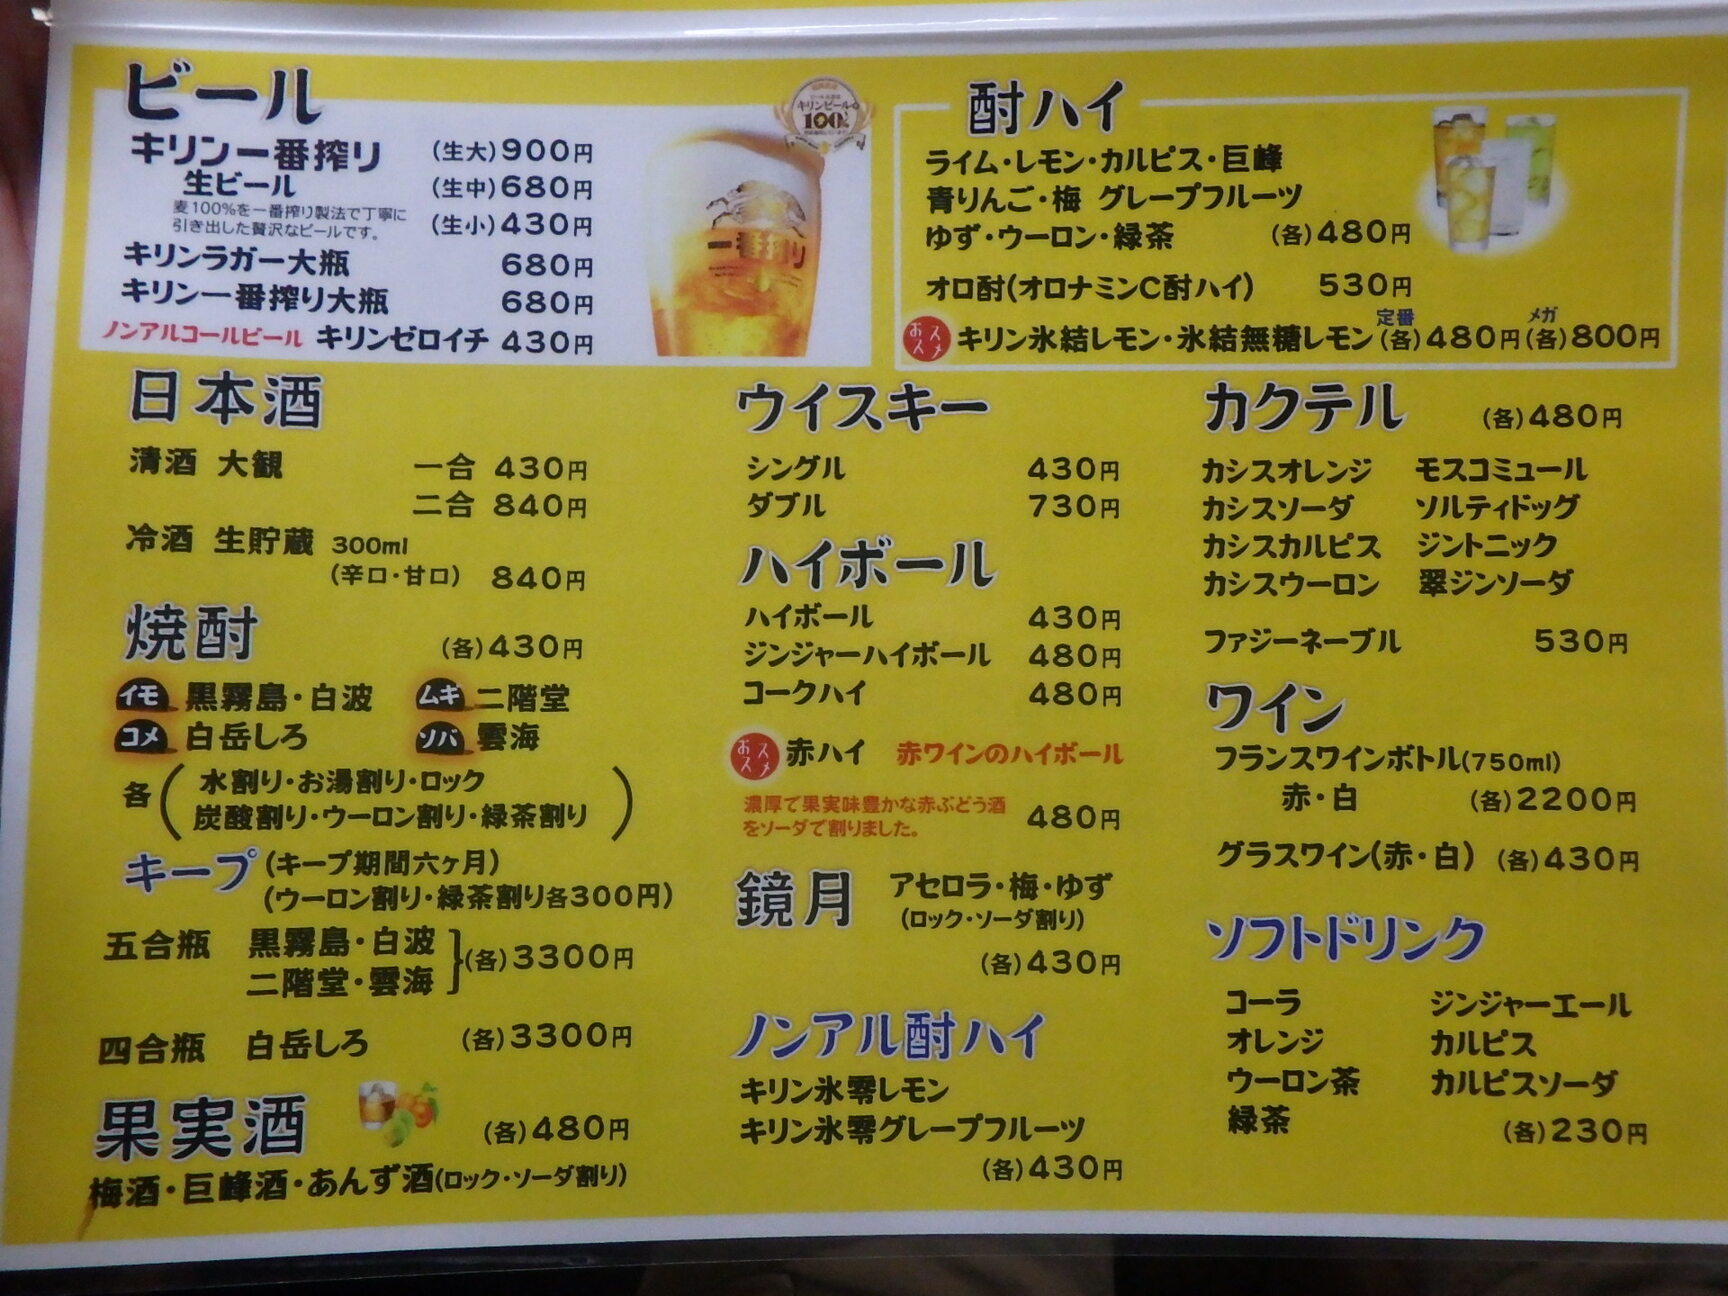 ビール
キリン一番搾り (生大)900円
生ビール (生中)680円
麦100%を一番搾り製法で丁寧に
引き出した贅沢なビールです。 (生小)430円
キリンラガー大瓶 680円
キリン一番搾り大瓶 680円
ノンアルコールビール キリンゼロイチ 430円
キリンビール
100%
一番搾り
酎ハイ
ライム・レモン・カルピス・巨峰
青りんご・梅 グレープフルーツ
ゆず・ウーロン・緑茶 (各)480円
オロ酎(オロナミンC酎ハイ) 530円
定番 メガ
おススメ キリン氷結レモン・氷結無糖レモン(各)480円(各)800円
日本酒
清酒 大観 一合 430円
二合 840円
冷酒 生貯蔵 300ml
(辛口・甘口) 840円
焼酎 (各)430円
イモ 黒霧島・白波 ムギ 二階堂
コメ 白岳しろ ソバ 雲海
各(水割り・お湯割り・ロック
炭酸割り・ウーロン割り・緑茶割り)
キープ(キープ期間六ヶ月)
(ウーロン割り・緑茶割り各300円)
五合瓶 黒霧島・白波
二階堂・雲海 (各)3300円
四合瓶 白岳しろ (各)3300円
果実酒 (各)480円
梅酒・巨峰酒・あんず酒(ロック・ソーダ割り)
ウイスキー
シングル 430円
ダブル 730円
ハイボール
ハイボール 430円
ジンジャーハイボール 480円
コークハイ 480円
おススメ 赤ハイ 赤ワインのハイボール
濃厚で果実味豊かな赤ぶどう酒
をソーダで割りました。 480円
鏡月 アセロラ・梅・ゆず
(ロック・ソーダ割り)
(各)430円
ノンアル酎ハイ
キリン氷零レモン
キリン氷零グレープフルーツ
(各)430円
カクテル (各)480円
カシスオレンジ モスコミュール
カシスソーダ ソルティドッグ
カシスカルピス ジントニック
カシスウーロン 翠ジンソーダ
ファジーネーブル 530円
ワイン
フランスワインボトル(750ml)
赤・白 (各)2200円
グラスワイン(赤・白) (各)430円
ソフトドリンク
コーラ ジンジャーエール
オレンジ カルピス
ウーロン茶 カルピスソーダ
緑茶 (各)230円